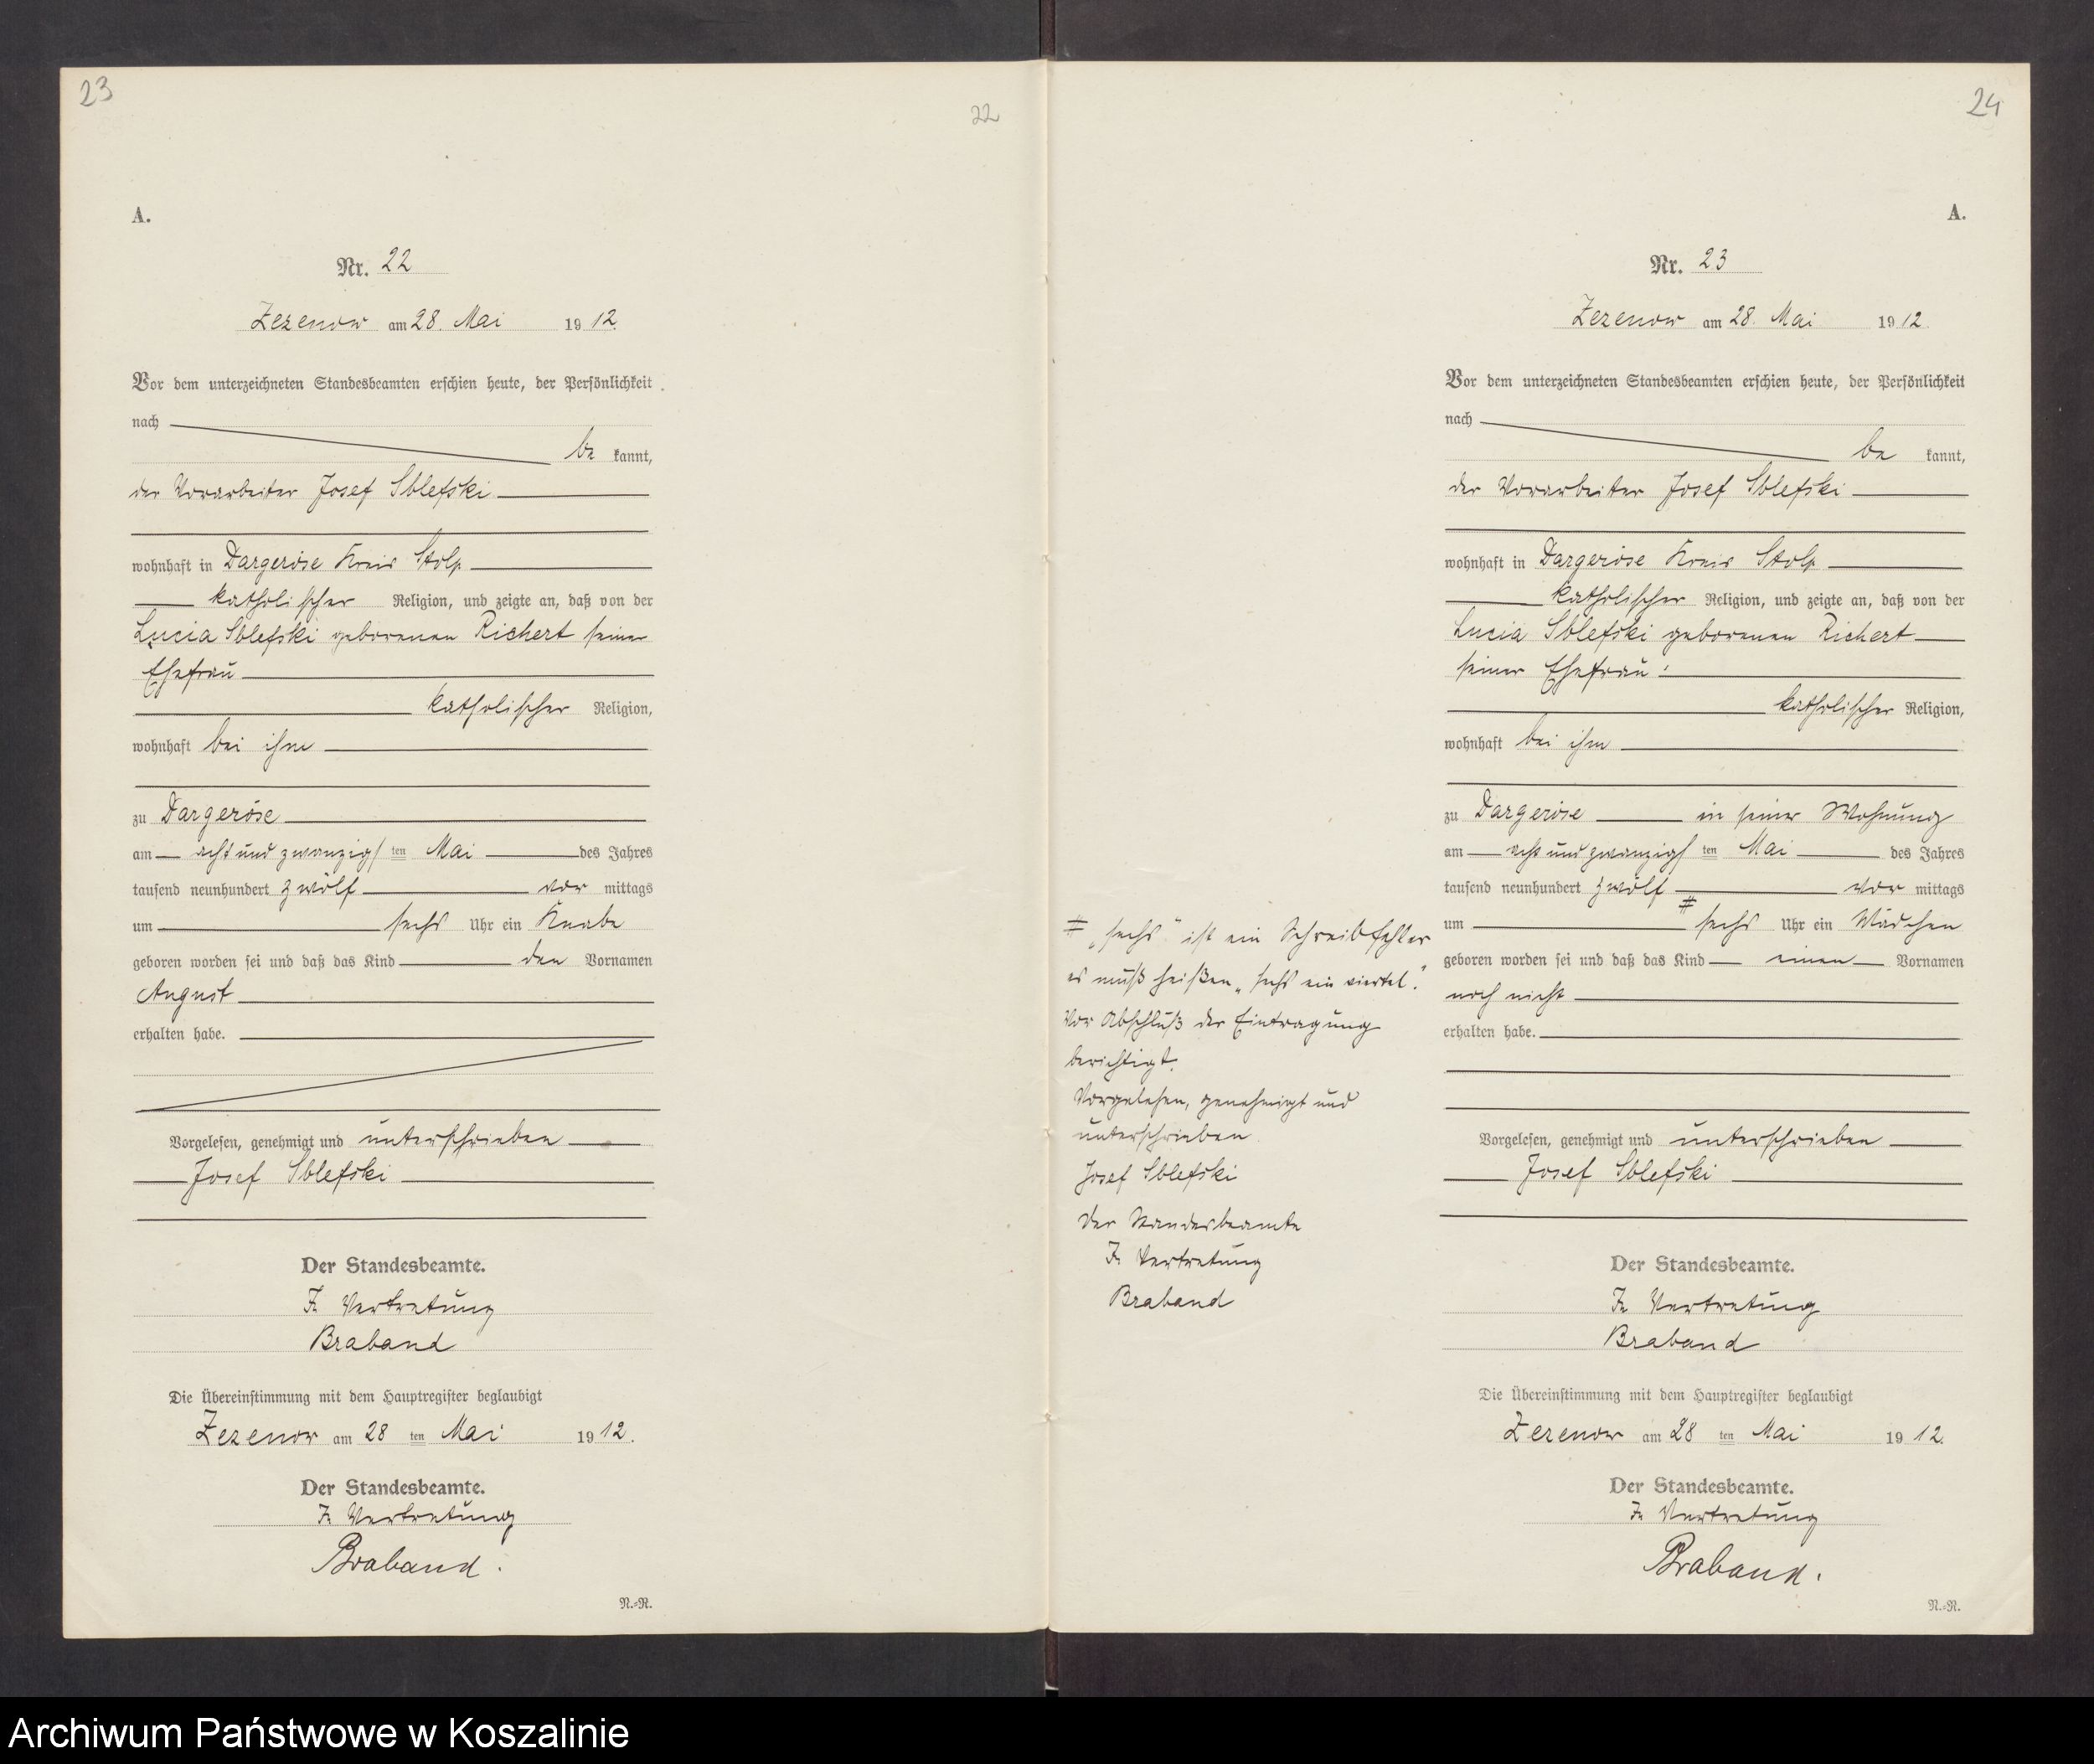 23
22
A.
Nr. 22
Zezenow am 28. Mai 1912.
Vor dem unterzeichneten Standesbeamten erschien heute, der Persönlichkeit
nach
be kannt,
der Vorarbeiter Josef Sblefski
wohnhaft in Dargeröse Kreis Stolp
katholischer Religion, und zeigte an, daß von der
Lucia Sblefski geborenen Richert seiner
Ehefrau
katholischer Religion,
wohnhaft bei ihm
zu Dargeröse
am acht und zwanzig ten Mai des Jahres
tausend neunhundert zwölf vor mittags
um sechs Uhr ein Knabe
geboren worden sei und daß das Kind den Vornamen
August
erhalten habe.
Vorgelesen, genehmigt und unterschrieben
Josef Sblefski
Der Standesbeamte.
In Vertretung
Braband
Die Übereinstimmung mit dem Hauptregister beglaubigt
Zezenow am 28 ten Mai 1912.
Der Standesbeamte.
In Vertretung
Braband.
N.=R.
24
A.
Nr. 23
Zezenow am 28. Mai 1912.
Vor dem unterzeichneten Standesbeamten erschien heute, der Persönlichkeit
nach
be kannt,
der Vorarbeiter Josef Sblefski
wohnhaft in Dargeröse Kreis Stolp
katholischer Religion, und zeigte an, daß von der
Lucia Sblefski geborenen Richert
seiner Ehefrau
katholischer Religion,
wohnhaft bei ihm
zu Dargeröse in seiner Wohnung
am acht und zwanzig ten Mai des Jahres
tausend neunhundert zwölf vor mittags
um # sechs Uhr ein Mädchen
geboren worden sei und daß das Kind einen Vornamen
noch nicht
erhalten habe.
Vorgelesen, genehmigt und unterschrieben
Josef Sblefski
Der Standesbeamte.
In Vertretung
Braband
Die Übereinstimmung mit dem Hauptregister beglaubigt
Zezenow am 28 ten Mai 1912.
Der Standesbeamte.
In Vertretung
Braband.
N.=R.
# „sechs" ist ein Schreibfehler
es muß heißen „sechs ein viertel."
Vor Abschluß der Eintragung
berichtigt.
Vorgelesen, genehmigt und
unterschrieben
Josef Sblefski
Der Standesbeamte
In Vertretung
Braband
Archiwum Państwowe w Koszalinie